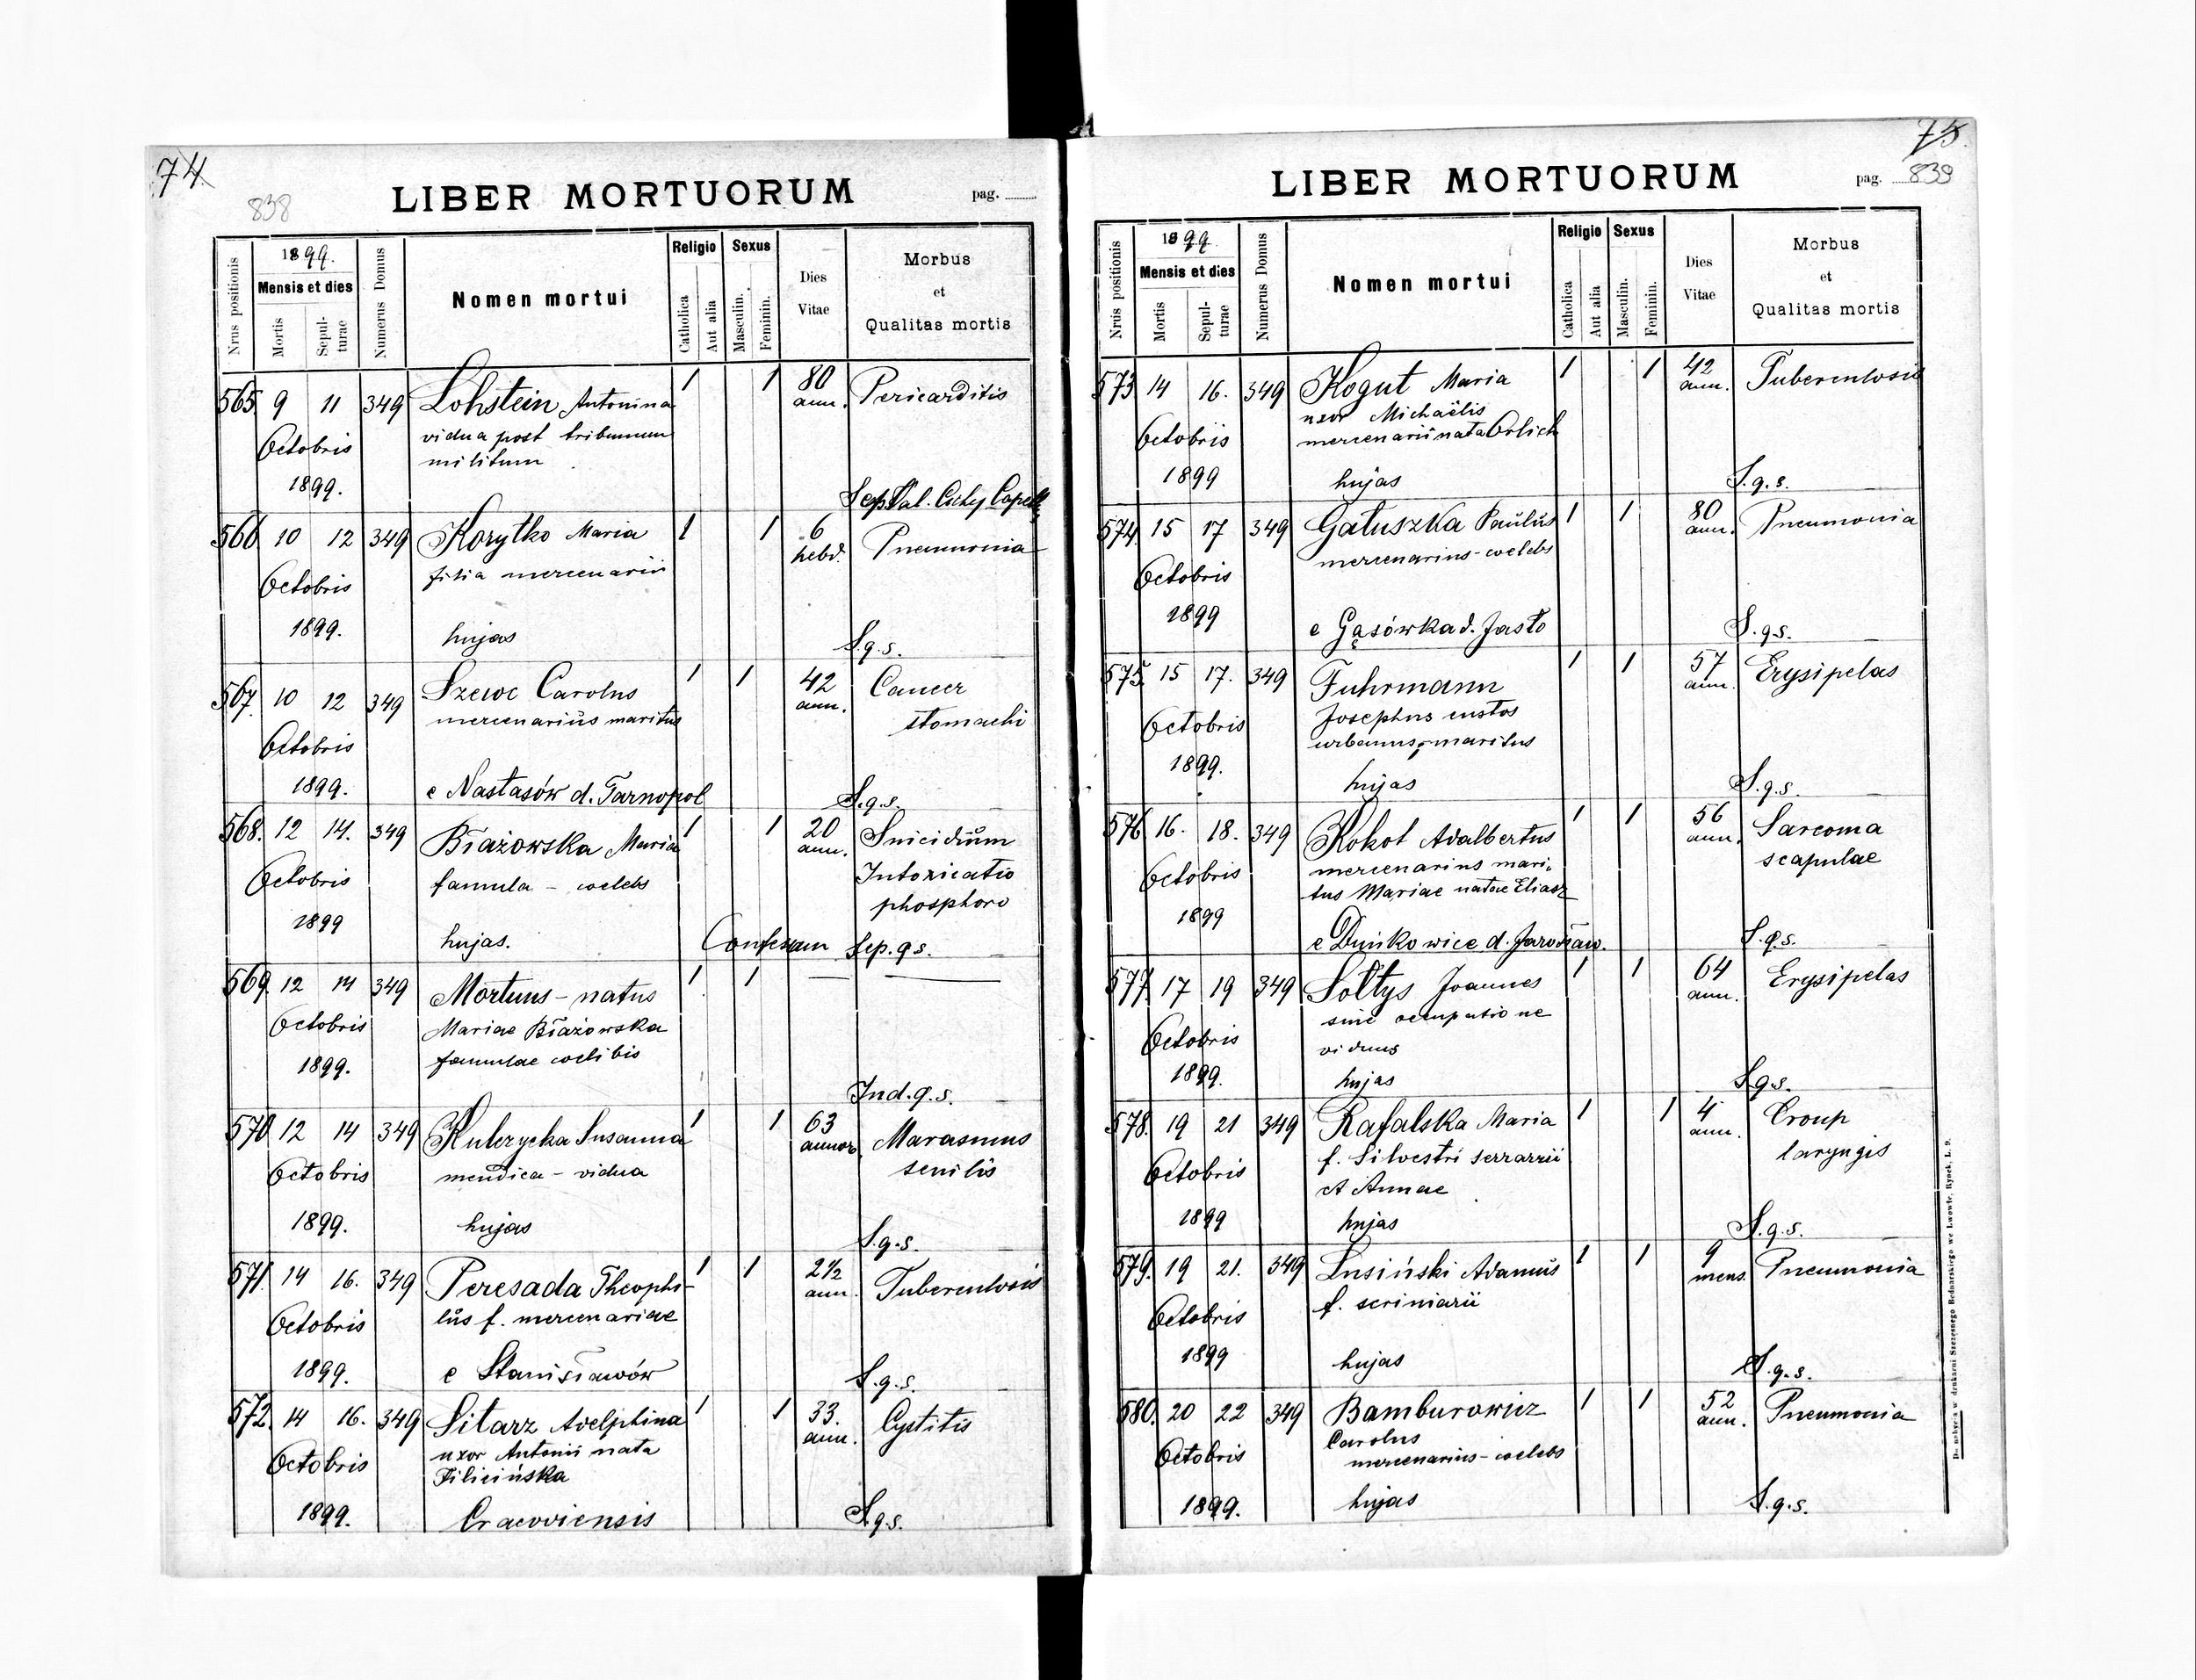 74.
838
LIBER MORTUORUM
pag.
Nrus positionis
1899.
Mensis et dies
Mortis
Sepul-
turae
Numerus Domus
Nomen mortui
Religio
Catholica
Aut alia
Sexus
Masculin.
Feminin.
Dies
Vitae
Morbus
et
Qualitas mortis
565 9 11 349 Lohstein Antonina 1 1 80 ann. Pericarditis
vidua post tribunum
Octobris
militum
1899.
Sep. Val. Cichy Capell
566 10 12 349 Korytko Maria 1 1 6 hebd. Pneumonia
filia mercenarii
Octobris
1899. hujas S.q.s.
567. 10 12 349 Szewc Carolus 1 1 42 ann. Cancer
mercenariüs maritus stomachi
Octobris
1899. e Nastasów d. Tarnopol S.q.s.
568. 12 14. 349 Błażowska Maria 1 1 20 ann. Suicidiüm
Octobris famula - coelebs Intoxicatio
phosphoro
1899 hujas. Sep. q s.
569. 12 14 349 Mortuus - natus 1 1 — —
Octobris Mariae Błażowska
famulae coelibis
1899.
Ind. q. s.
570 12 14 349 Kulczycka Susanna 1 1 63 annor. Marasmus
Octobris mendica - vidua senilis
1899. hujas S.q.s.
571. 14 16. 349 Peresada Theophi- 1 1 2½ ann. Tuberculosis
Octobris lüs f. mercenariae
1899. e Stanisławów S.q.s.
572. 14 16. 349 Sitarz Adelphina 1 1 33. ann. Cystitis
uxor Antonii nata
Octobris Filicińska
1899. Cracoviensis S.q.s.
75.
LIBER MORTUORUM
pag. 839
Nrus positionis
1899.
Mensis et dies
Mortis
Sepul-
turae
Numerus Domus
Nomen mortui
Religio
Catholica
Aut alia
Sexus
Masculin.
Feminin.
Dies
Vitae
Morbus
et
Qualitas mortis
573 14 16. 349 Kogut Maria 1 1 42 ann. Tuberculosis
uxor Michaëlis
Octobris mercenarii nata Orlich
1899 hujas S.q.s.
574. 15 17 349 Gałuszka Paulüs 1 1 80 ann. Pneumonia
mercenarius - coelebs
Octobris
1899 e Gąsówka d. Jasło S.q.s.
575. 15 17. 349 Fuhrmann 1 1 57 ann. Erysipelas
Octobris Josephus custos
urbanus, maritus
1899. hujas S.q.s.
576 16. 18. 349 Kokot Adalbertus 1 1 56 ann. Sarcoma
mercenarius mari- scapulae
Octobris tus Mariae natae Eliasz
1899 e Duńkowice d. Jarosław. S.q.s.
577. 17 19 349 Sołtys Joannes 1 1 64 ann. Erysipelas
sine occupatione
Octobris viduus
1899. hujas S.q.s.
578. 19 21 349 Rafalska Maria 1 1 4 ann. Croup
f. Silvestri serrarii laryngis
Octobris et Annae
1899 hujas S.q.s.
579. 19 21. 349 Lusiński Adamüs 1 1 9 mens. Pneumonia
Octobris f. scriniarii
1899 hujas S.q.s.
580. 20 22 349 Bamburowicz 1 1 52 ann. Pneumonia
Carolus
Octobris mercenarius - coelebs
1899. hujas S.q.s.
Do nabycia w drukarni Szczęsnego Bednarskiego we Lwowie, Rynek, L. 9.